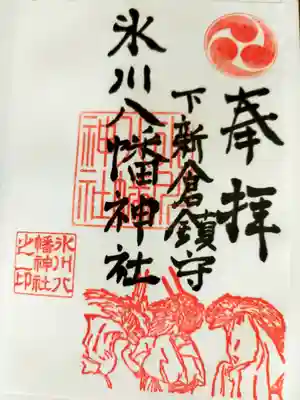 奉拝
下新倉鎮守
氷川八幡神社
氷川八
幡神社
之印